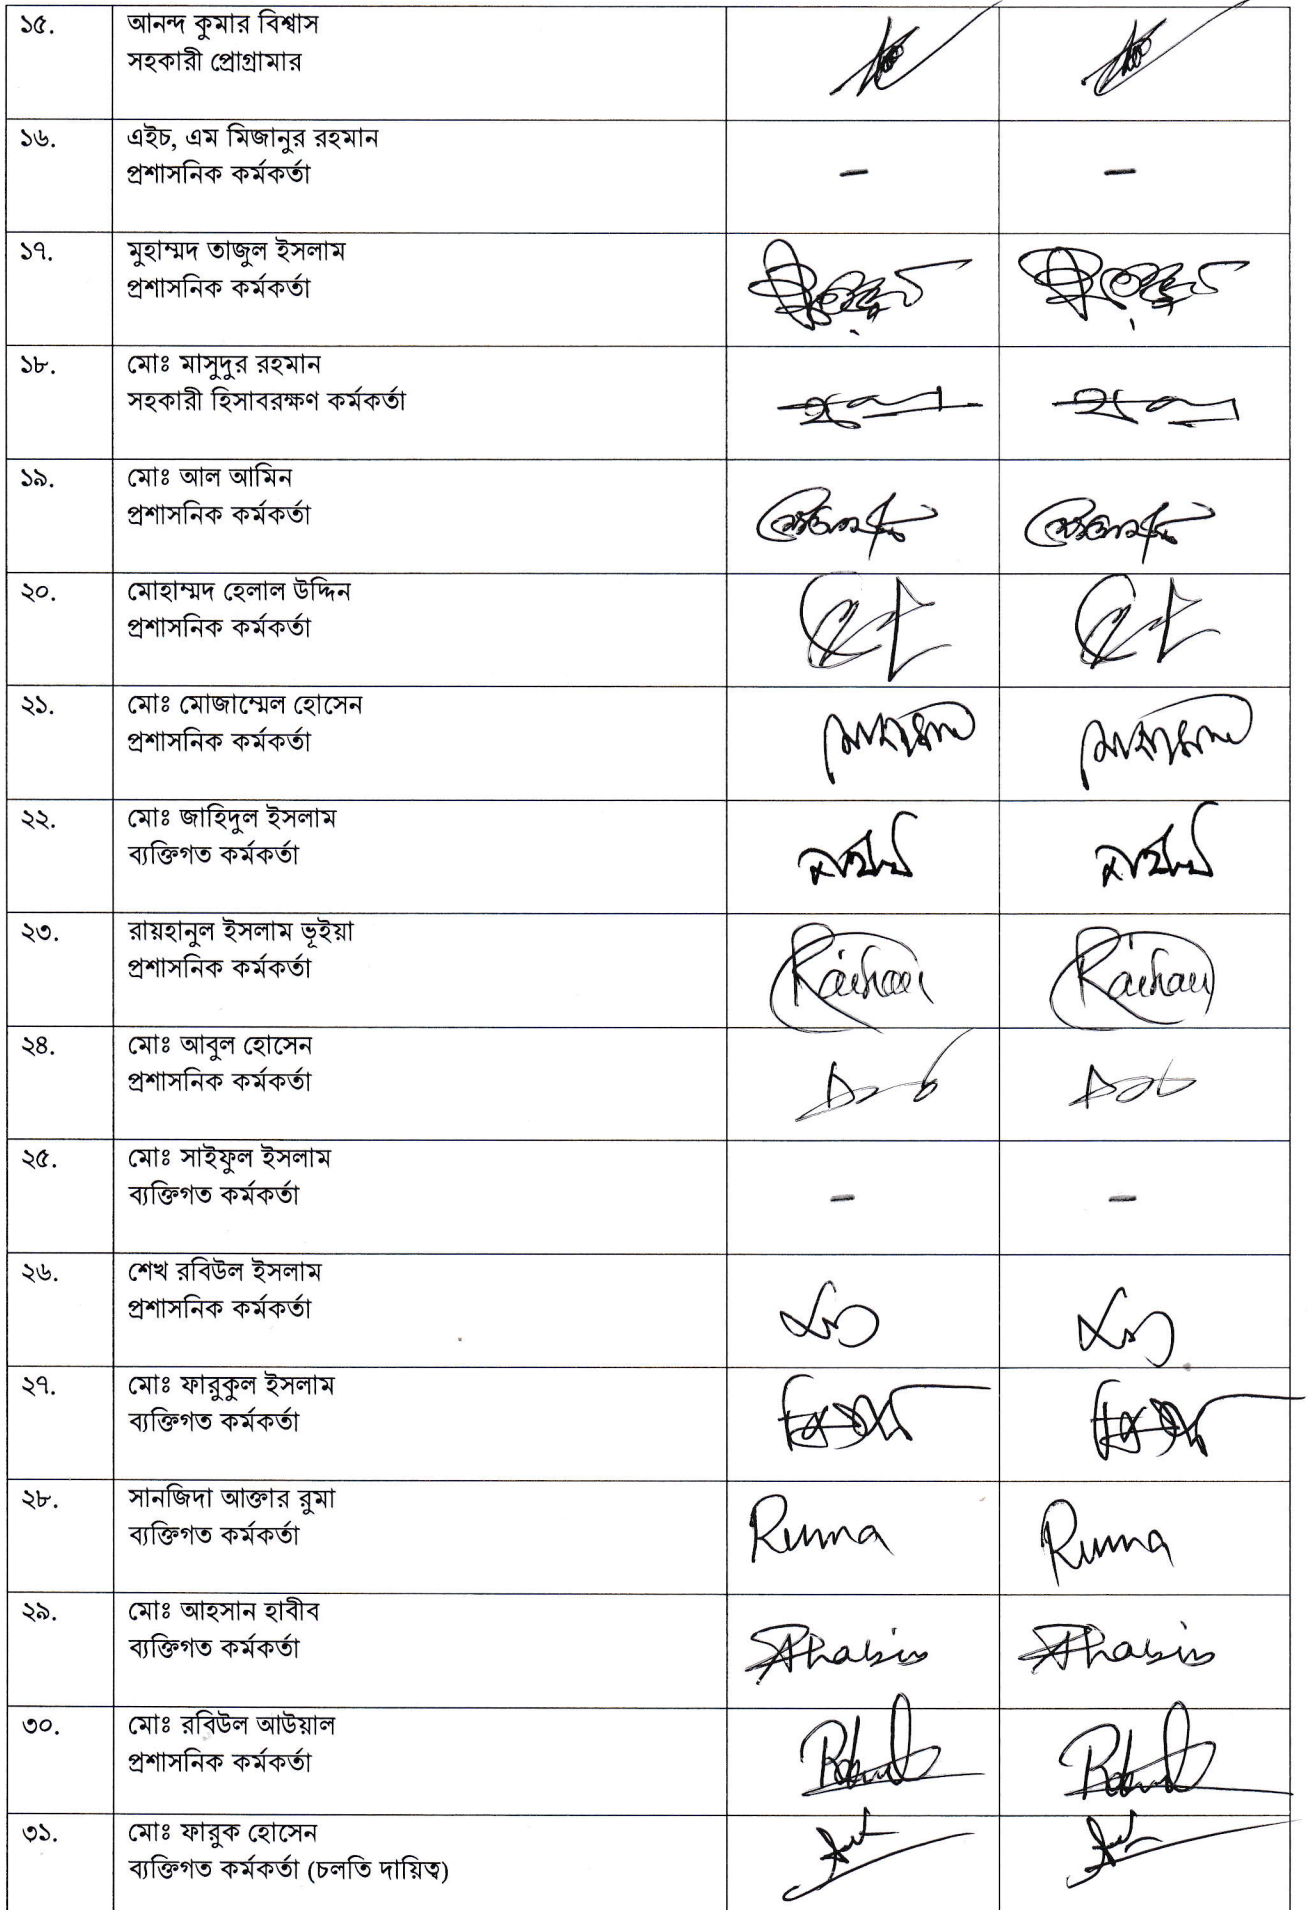 ১৫. আনন্দ কুমার বিশ্বাস
সহকারী প্রোগ্রামার
১৬. এইচ, এম মিজানুর রহমান
প্রশাসনিক কর্মকর্তা
– –
১৭. মুহাম্মদ তাজুল ইসলাম
প্রশাসনিক কর্মকর্তা
১৮. মোঃ মাসুদুর রহমান
সহকারী হিসাবরক্ষণ কর্মকর্তা
১৯. মোঃ আল আমিন
প্রশাসনিক কর্মকর্তা
২০. মোহাম্মদ হেলাল উদ্দিন
প্রশাসনিক কর্মকর্তা
২১. মোঃ মোজাম্মেল হোসেন
প্রশাসনিক কর্মকর্তা
২২. মোঃ জাহিদুল ইসলাম
ব্যক্তিগত কর্মকর্তা
২৩. রায়হানুল ইসলাম ভূইয়া
প্রশাসনিক কর্মকর্তা
Raihan Raihan
২৪. মোঃ আবুল হোসেন
প্রশাসনিক কর্মকর্তা
২৫. মোঃ সাইফুল ইসলাম
ব্যক্তিগত কর্মকর্তা
– –
২৬. শেখ রবিউল ইসলাম
প্রশাসনিক কর্মকর্তা
২৭. মোঃ ফারুকুল ইসলাম
ব্যক্তিগত কর্মকর্তা
২৮. সানজিদা আক্তার রুমা
ব্যক্তিগত কর্মকর্তা
Ruma Ruma
২৯. মোঃ আহসান হাবীব
ব্যক্তিগত কর্মকর্তা
Ahabib Ahabib
৩০. মোঃ রবিউল আউয়াল
প্রশাসনিক কর্মকর্তা
৩১. মোঃ ফারুক হোসেন
ব্যক্তিগত কর্মকর্তা (চলতি দায়িত্ব)